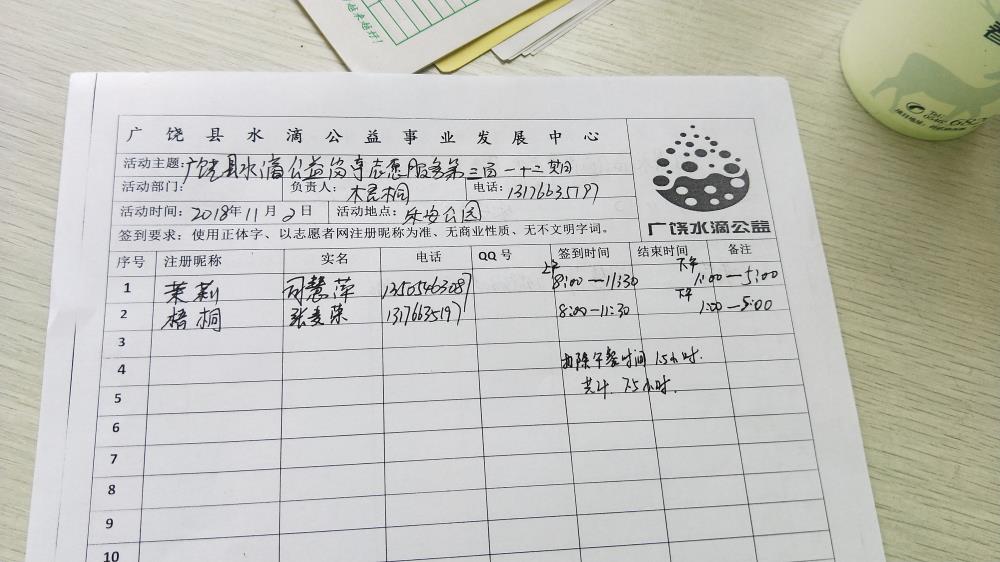 越来越好！
广饶县水滴公益事业发展中心
活动主题：广饶县水滴公益岗亭志愿服务第三百一十二期
活动部门： 负责人：梧桐 电话：13176635197
活动时间：2018年11月2日 活动地点：乐安公园
签到要求：使用正体字、以志愿者网注册昵称为准、无商业性质、无不文明字词。
广饶水滴公益
序号 注册昵称 实名 电话 QQ号 签到时间 结束时间 备注
1 茉莉 司慧萍 13505463087 上午 8:00—11:30 下午 1:00—5:00
2 梧桐 张麦荣 13176635197 8:00—11:30 下午 1:00—5:00
3
扣除午餐时间 1.5小时.
4
共计 7.5小时.
5
6
7
8
9
10